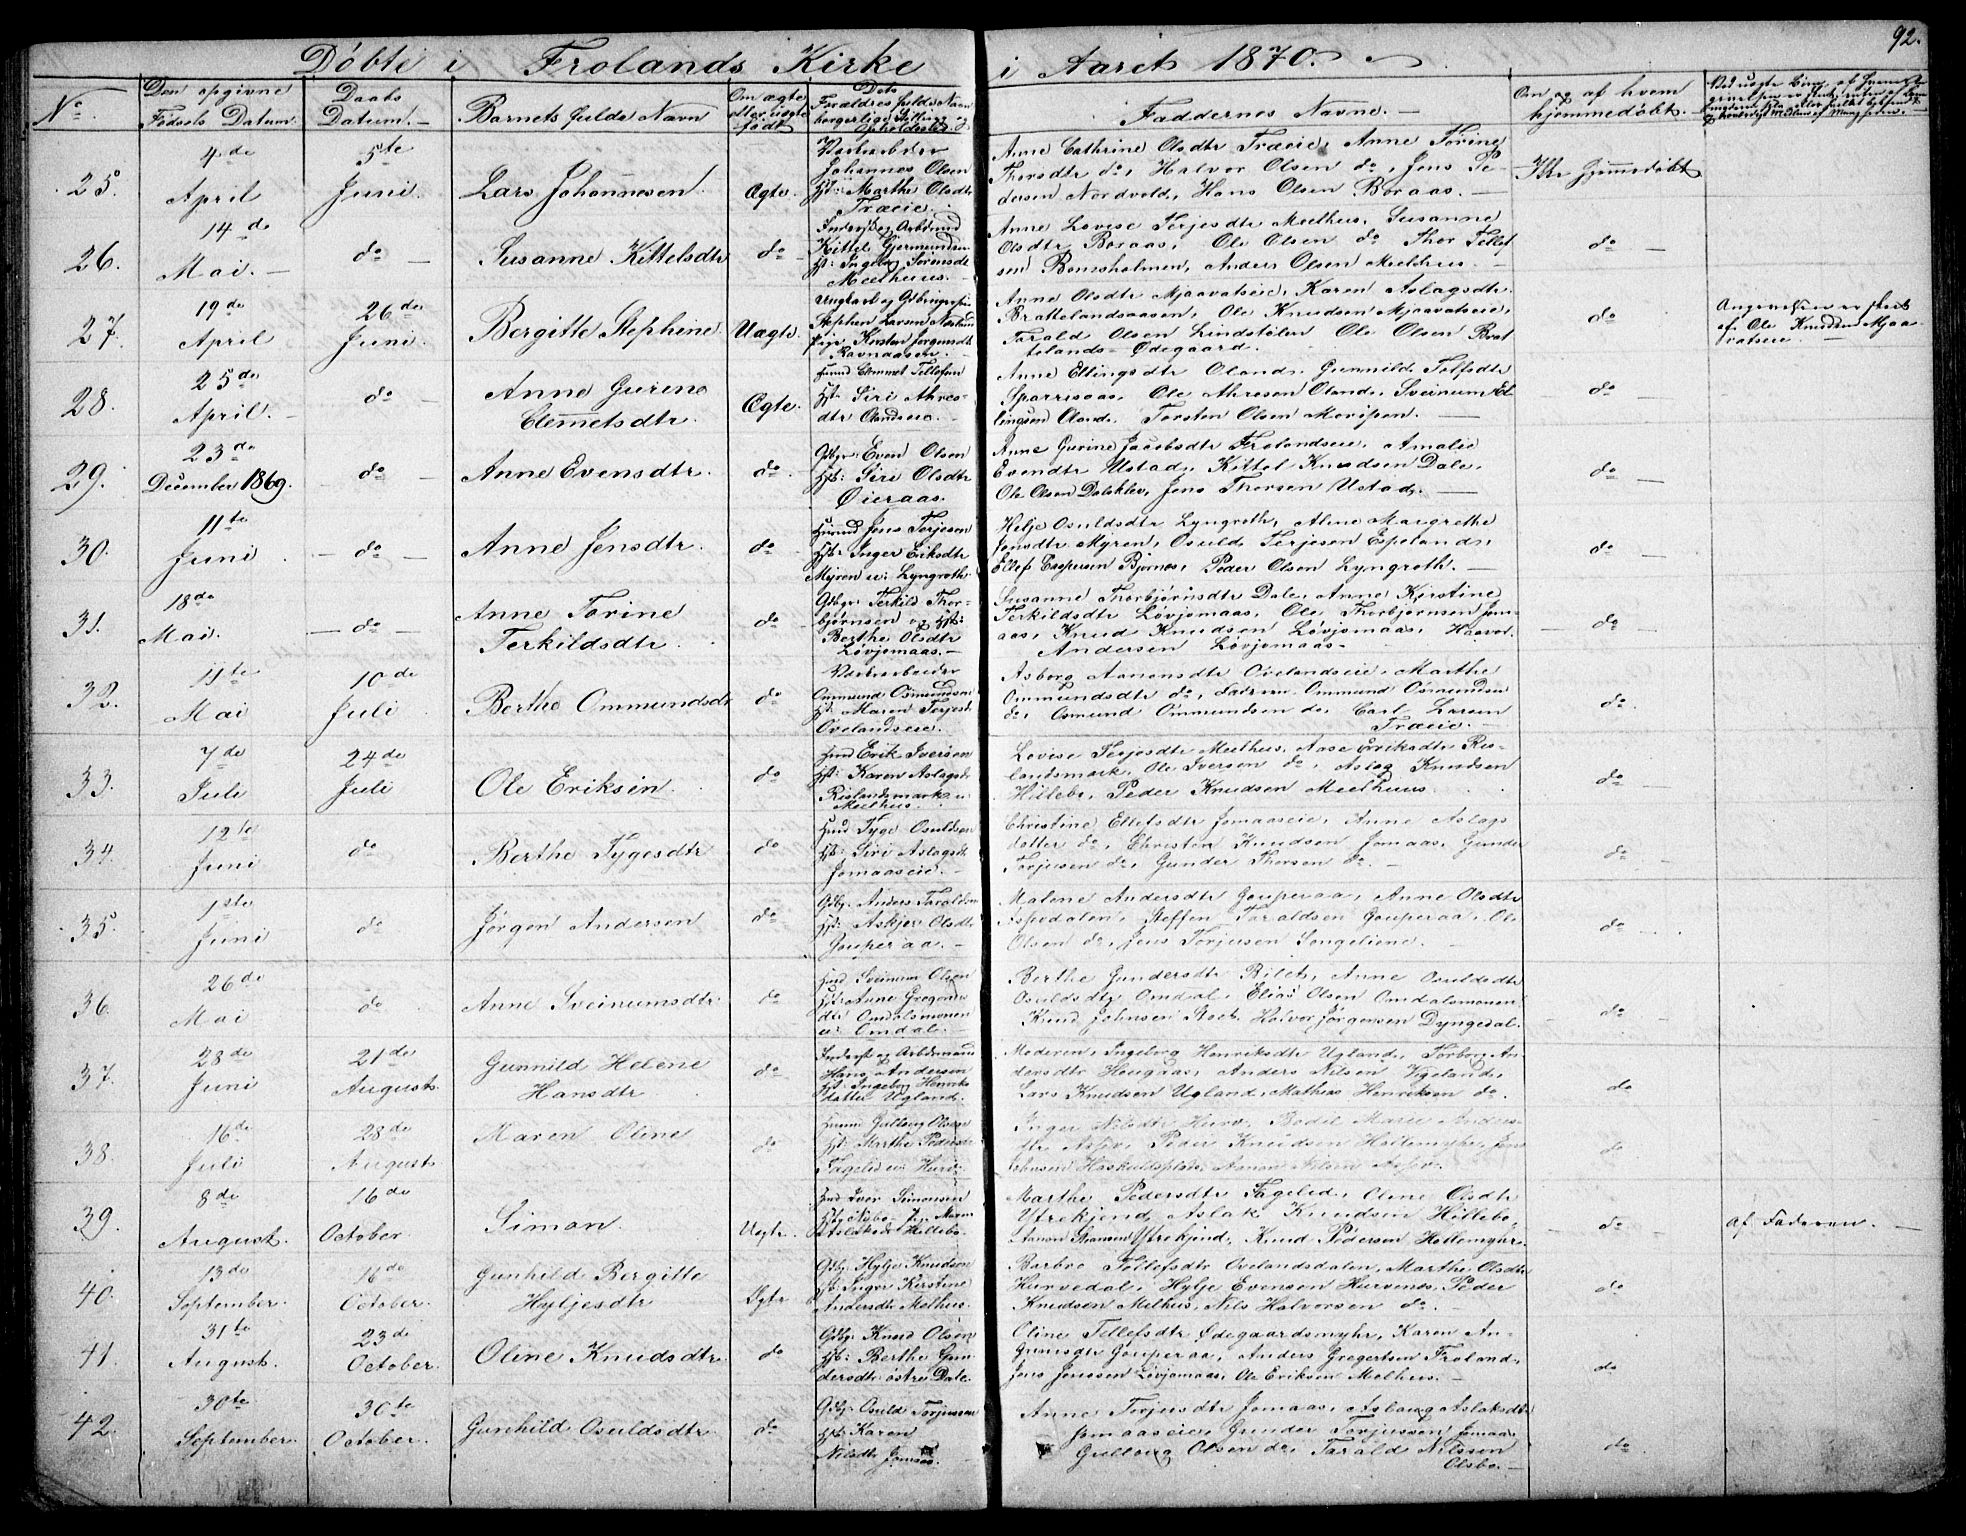 92.
Døbte i Frolands Kirke i Aaret 1870.
No
Den opgivne Fødsels Datum.
Daabs Datum.
Barnets fulde Navn
Om ægte eller uægte født
Dets Forældres fulde Navn borgerlige Stilling og Opholdssted.
Faddernes Navne.
Om og af hvem hjemmedøbt.
25.
4de April
5te Juni
Lars Johannesen
Ægte
Johannes Olsen
Hst: Marthe Olsdtr
Træeie.
Anne Cathrine Olsdtr Træeie, Anne Torine
Thorsdtr do, Halvor Olsen do, Jens Pe-
dersen Nordvold, Hans Olsen Boraas.
Ikke hjemmedøbt
26.
14de Mai.
do
Susanne Kittelsdtr
do
Kittel Gjermundsen
Hst: Ingeborg Sørensdtr
Meelhuus.
Anne Lovise Terjesdtr Meelhus, Susanne
Olsdtr Boraas, Ole Olsen do, Thor Tellef
sen Bomsholmen, Anders Olsen Meelhus.
do
27.
19de April
26de Juni
Bergitte Stephine
Uægte
Stephen Larsen
Pige Kirsten Jørgensdtr
Ravnaasen
Anne Olsdtr Mjaavatseie, Karen Aslagsdtr
Brattelandsaasen, Ole Knudsen Mjaavatseie,
Tarald Olsen Lindstølen Ole Olsen Brat
telands-Ødegaard.
do
Angivelsen er skeet
af Ole Knudsen Mjaa-
vatseie.
28.
25de April.
do
Anne Gurine
Clemetsdtr.
Ægte.
Clemmet Tellefsen
Hst: Siri Ahres-
dtr Olandseie
Anne Ellingsdtr Oland, Gunnild Tolfsdtr
Sparrisaas, Ole Ahresen Oland, Sveinum El-
lingsen Oland, Torsten Olsen Moripen.
do
29.
23de December 1869.
do
Anne Evensdtr.
do.
Gdbgr. Even Olsen
Hst: Siri Olsdtr
Øieraas.
Anne Gurine Jacobsdtr Frolandseie, Amalie
Evendtr Ustad, Kittel Knudsen Dale,
Ole Olsen Daleklev, Jens Thorsen Ustad.
do
30.
11te Juni
do
Anne Jensdtr.
do
Jens Terjesen
Hst: Inger Eriksdtr
Myren u: Lyngroth
Helje Osuldsdtr Lyngroth, Aline Margrethe
Jensdtr Myren, Osuld Terjesen Espeland,
Ellef Caspersen Bjornes, Peder Olsen Lyngroth.
do
31.
18de Mai.
do
Anne Torine
Terkildsdtr.
do
Gdbgr Terkild Thor-
bjørnsen og Hst:
Berthe Olsdtr
Løvjomaas.
Susanne Thorbjørnsdtr Dale, Anne Kirstine
Terkildsdtr Løvjomaas, Ole Thorbjørnsen Jom-
aas, Knud Knudsen Løvjomaas, Haavor.
Andersen Løvjomaas
do
32.
11te Mai
10de Juli
Berthe Ommundsdtr
do
Ommund Osmundsen
Hst: Maren Terjesdtr
Ovelandseie.
Asborg Aanonsdtr Ovelandseie, Marthe
Ommundsdtr do, Faderen Ommund Osmundsen
do, Osmund Ommundsen do, Carl Larsen
Træeie.
do.
33.
7de Juli
24de Juli
Ole Eriksen.
do
Hmd Erik Iversen
Hst: Karen Aslagsdr
Rislandsmark u:
Meelhus.
Lovise Terjesdtr Meelhus, Aase Eriksdtr Ris-
landsmark, Ole Iversen do, Aslag Knudsen
Hillebo, Peder Knudsen Meelhuus
do
34.
12te Juni
do
Berthe Tygesdtr
do
Hmd Tyge Osuldsen
Hst: Siri Aslagsdr
Jomaaseie.
Christine Ellefsdtr Jomaaseie, Anne Aslags
datter do, Christen Knudsen Jomaas, Gunder
Torjusen do, Gunder Thorsen do.
do
35.
1ste Juni
do
Jørgen Andersen
do
Gdbgr. Anders Taraldsen
Hst: Askjer Olsdtr
Gouperaa.
Malene Andersdtr Gouperaa, Anne Olsdtr
Aspedalen, Steffen Taraldsen Gouperaa, Ole
Olsen do, Jens Torjusen Songeliene.
do
36.
26de Mai
do
Anne Sveinumsdtr
do
Hmd Sveinum Olsen
Hst: Anne Gregers
dtr Omdalsmonen
u: Omdal.
Berthe Gundersdtr Bilet, Anne Osuldsdtr
Osuldsdtr Omdal, Elias Olsen Omdalsmonen
Knud Johnsen Stoet, Halvor Jørgensen Dyngedal.
do
37.
28de Juni
21de Augusts
Gunnild Helene
Hansdtr
do
Hans Andersen
Hst: Ingeborg Henriks
datter Ugland.
Moderen, Ingeborg Henriksdtr Ugland, Torborg An-
dersdtr Hougaas, Anders Nilsen Vigeland,
Lars Knudsen Ugland, Mathias Henriksen do.
do
38.
16de Juli
28de August
Karen Oline
do
Gulloug Olsen
Hst: Marthe Pedersdtr
Fagelid u: Hurv
Inger Nilsdtr Hurv, Bodil Marie Anders-
dtr Aspev, Peder Knudsen Hattemyhr,
Aanon Nilsen
do
39.
8de August.
16de October.
Simon.
Uægte.
Iver Simonsen
Hillebo.
Marthe Pedersdtr Fagelid, Oline Olsdtr
Ytrekjend, Aslak Knudsen Hillebo,
Aanon Ytrekjend, Knud Pedersen Hattemyhr
do
af Faderen.
40.
13de September.
16de October.
Gunhild Bergitte
Hyljesdtr
Ægte
Gdbgr. Hylje Knudsen
Hst: Inger Kirstine
Andersdtr Melhus.
Barbro Tellefsdtr Ovelandsdalen, Marthe Olsdtr
Hurvedal, Hylje Evensen Hurvenes, Peder
Knudsen Melhus, Nils Halvorsen do.
do
41.
31te August.
23de October.
Oline Knudsdtr
do
Gdbgr. Knud Olsen
Hst: Berthe Gun
dersdtr østre Dale.
Oline Tellefsdtr Ødegaardsmyhr, Karen An-
Gouperaa, Anders Gregertsen Froland,
Jens Jenssen Løvjomaas, Ole Eriksen Melhus.
do
42.
30te September.
30te October.
Gunhild Osuldsdtr
do
Gdbgr. Osuld Torjussen
Hst: Karen
Nilsdtr Jomaas.
Anne Torjusdtr Jomaas, Aslaug Aslaksdtr
Jomaaseie, Gunder Torjussen Jomaas
Gulloug Olsen do, Tarald Nilssen
Olsbo.
do